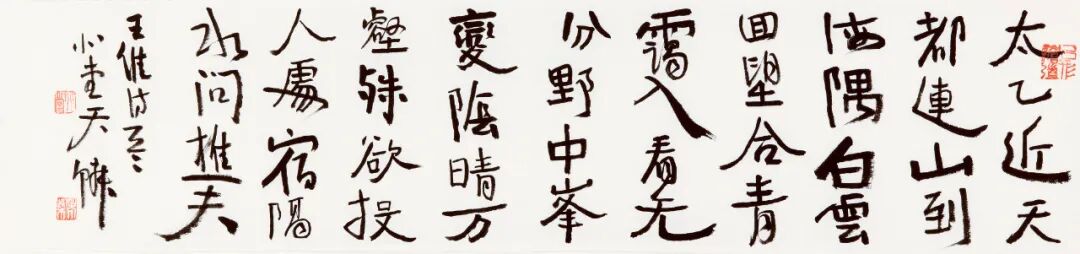 太乙近天
都連山到
海隅白雲
回望合青
靄入看无
分野中峯
變陰晴万
壑殊欲投
人處宿隔
水问樵夫
王維诗